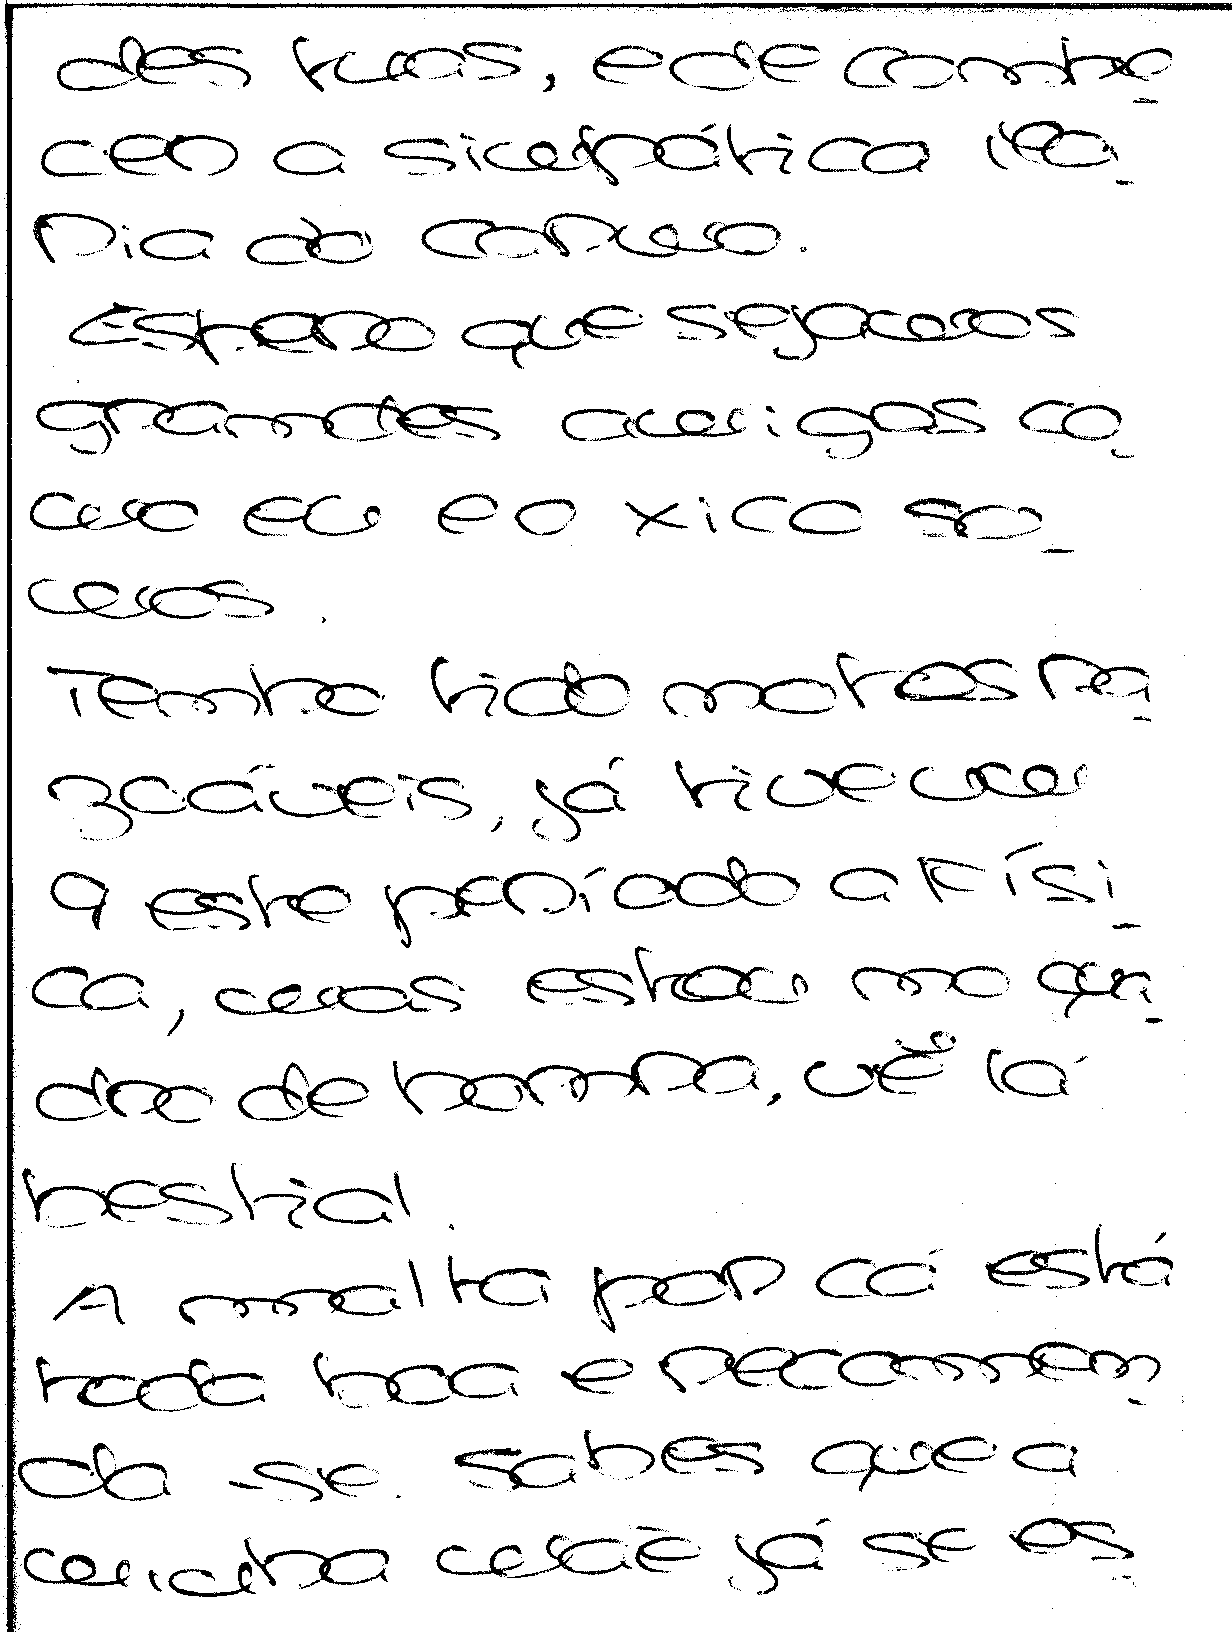 des tuas, e de conhe_
cer a simpática Ma_
ria do Carmo.
Espero que sejamos
grandes amigos co_
mo eu e o xico so_
mos.
Tenho tido notas ra_
zoáveis, já tive um
9 este período a Físi_
ca, mas estou no qua_
dro de honra, vê lá
bestial.
A malta por cá está
toda boa e recomen_
da-se. Sabes que a
minha mãe já se es_